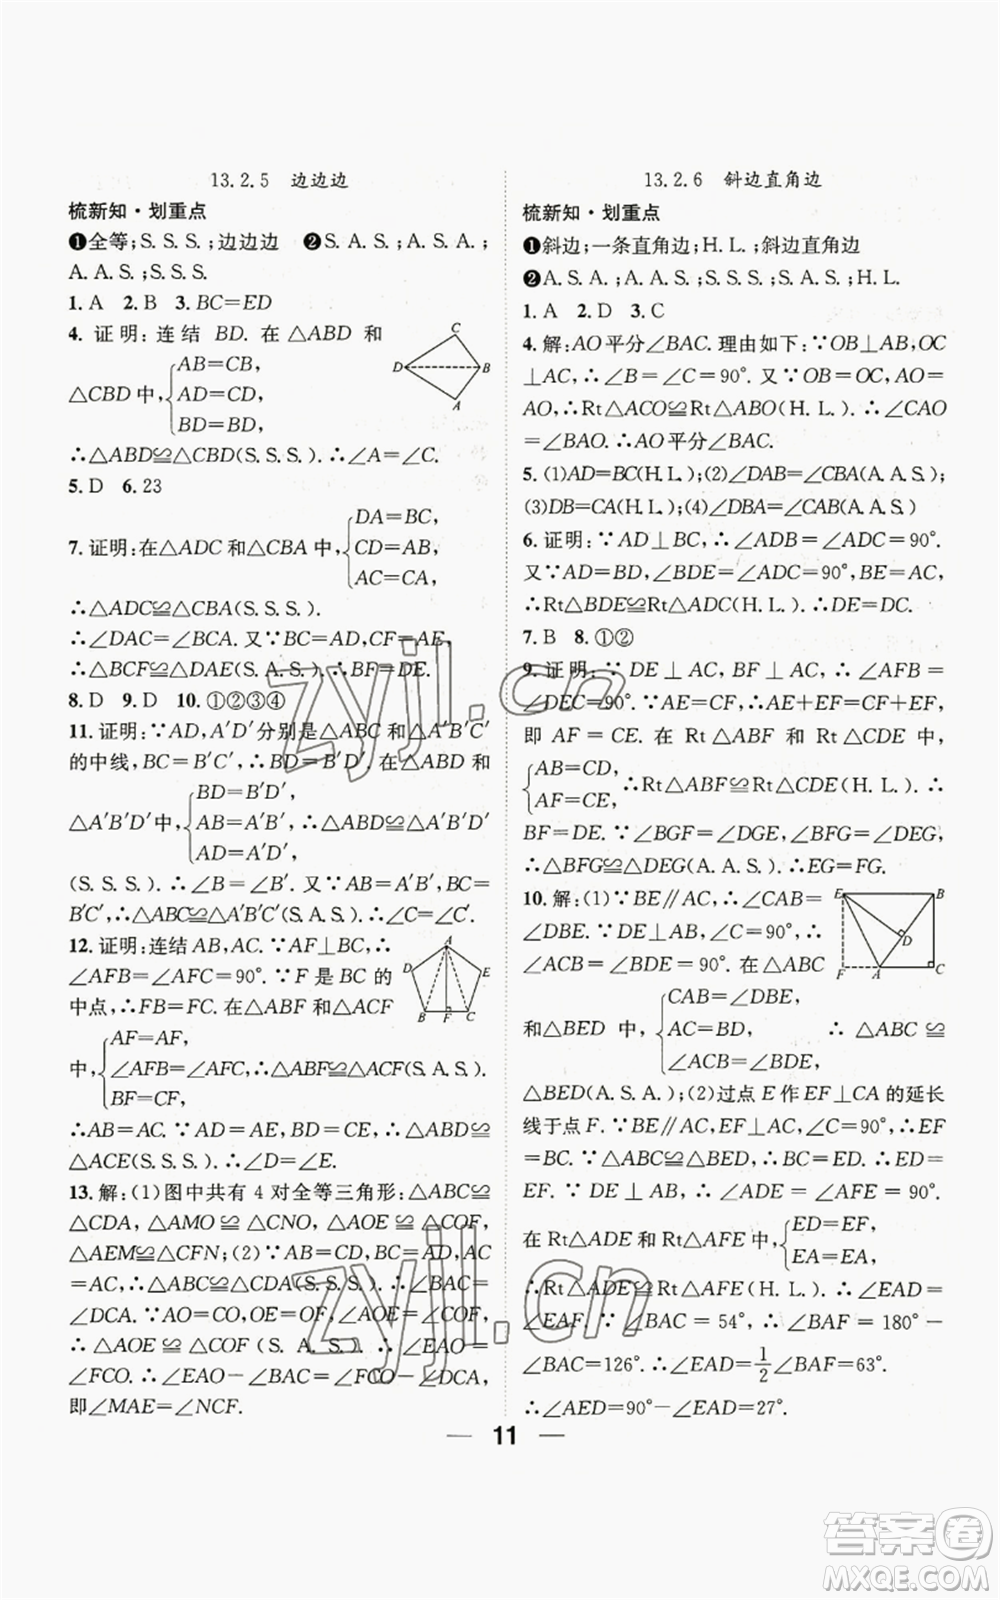 13.2.5 边边边
梳新知·划重点
❶全等;S.S.S.;边边边 ❷S.A.S.;A.S.A.;
A.A.S.;S.S.S.
1. A 2. B 3. BC=ED
4. 证明:连结 BD. 在△ABD 和
△CBD 中,
AB=CB,
AD=CD,
BD=BD,
D C B A
∴△ABD≌△CBD(S.S.S.).∴∠A=∠C.
5. D 6. 23
7. 证明:在△ADC 和△CBA 中,
DA=BC,
CD=AB,
AC=CA,
∴△ADC≌△CBA(S.S.S.).
∴∠DAC=∠BCA. 又∵BC=AD,CF=AE,
∴△BCF≌△DAE(S.A.S.).∴BF=DE.
8. D 9. D 10. ①②③④
11. 证明:∵AD,A′D′分别是△ABC 和△A′B′C′
的中线,BC=B′C′,∴BD=B′D′. 在△ABD 和
△A′B′D′中,
BD=B′D′,
AB=A′B′,
AD=A′D′,
∴△ABD≌△A′B′D′
(S.S.S.).∴∠B=∠B′. 又∵AB=A′B′,BC=
B′C′,∴△ABC≌△A′B′C′(S.A.S.).∴∠C=∠C′.
12. 证明:连结 AB,AC.∵AF⊥BC,∴
∠AFB=∠AFC=90°.∵F 是 BC 的
中点,∴FB=FC. 在△ABF 和△ACF
A D E B F C
中,
AF=AF,
∠AFB=∠AFC,
BF=CF,
∴△ABF≌△ACF(S.A.S.).
∴AB=AC.∵AD=AE,BD=CE,∴△ABD≌
△ACE(S.S.S.).∴∠D=∠E.
13. 解:(1)图中共有 4 对全等三角形:△ABC≌
△CDA,△AMO≌△CNO,△AOE≌△COF,
△AEM≌△CFN;(2)∵AB=CD,BC=AD,AC
=AC,∴△ABC≌△CDA(S.S.S.).∴∠BAC=
∠DCA.∵AO=CO,OE=OF,∠AOE=∠COF,
∴△AOE≌△COF(S.A.S.).∴∠EAO=
∠FCO.∴∠BAC-∠EAO=∠FCO-∠DCA,
即∠MAE=∠NCF.
13.2.6 斜边直角边
梳新知·划重点
❶斜边;一条直角边;H.L.;斜边直角边
❷A.S.A.;A.A.S.;S.S.S.;S.A.S.;H.L.
1. A 2. D 3. C
4. 解:AO平分∠BAC. 理由如下:∵OB⊥AB,OC
⊥AC,∴∠B=∠C=90°. 又∵OB=OC,AO=
AO,∴Rt△ACO≌Rt△ABO(H.L.).∴∠CAO
=∠BAO.∴AO平分∠BAC.
5. (1)AD=BC(H.L.);(2)∠DAB=∠CBA(A.A.S.);
(3)DB=CA(H.L.);(4)∠DBA=∠CAB(A.A.S.)
6. 证明:∵AD⊥BC,∴∠BDE=∠ADC=90°.
又∵AD=BD,∠BDE=∠ADC=90°,BE=AC,
∴Rt△BDE≌Rt△ADC(H.L.).∴DE=DC.
7. B 8. ①②
9. 证明:∵DE⊥AC,BF⊥AC,∴∠AFB=
∠DEC=90°.∵AE=CF,∴AE+EF=CF+EF,
即 AF=CE. 在 Rt△ABF 和 Rt△CDE 中,
AB=CD,
AF=CE,
∴Rt△ABF≌Rt△CDE(H.L.).∴
BF=DE.∵∠BGF=∠DGE,∠BFG=∠DEG,
∴△BFG≌△DEG(A.A.S.).∴EG=FG.
10. 解:(1)∵BE∥AC,∴∠CAB=
∠DBE.∵DE⊥AB,∠C=90°,∴
∠ACB=∠BDE=90°. 在△ABC
E B D F A C
和△BED 中,
∠CAB=∠DBE,
AC=BD,
∠ACB=∠BDE,
∴△ABC≌
△BED(A.S.A.);(2)过点 E 作 EF⊥CA 的延长
线于点 F.∵BE∥AC,EF⊥AC,∠C=90°,∴EF
=BC.∵△ABC≌△BED,∴BC=ED.∴ED=
EF.∵DE⊥AB,∴∠ADE=∠AFE=90°.
在 Rt△ADE 和 Rt△AFE 中,
ED=EF,
EA=EA,
∴Rt△ADE≌Rt△AFE(H.L.).∴∠EAD=
∠EAF.∵∠BAC=54°,∴∠BAF=180°-
∠BAC=126°.∴∠EAD=1/2∠BAF=63°.
∴∠AED=90°-∠EAD=27°.
— 11 —
zyjl.cn
zyjl.cn
答案圈
MXQE.COM